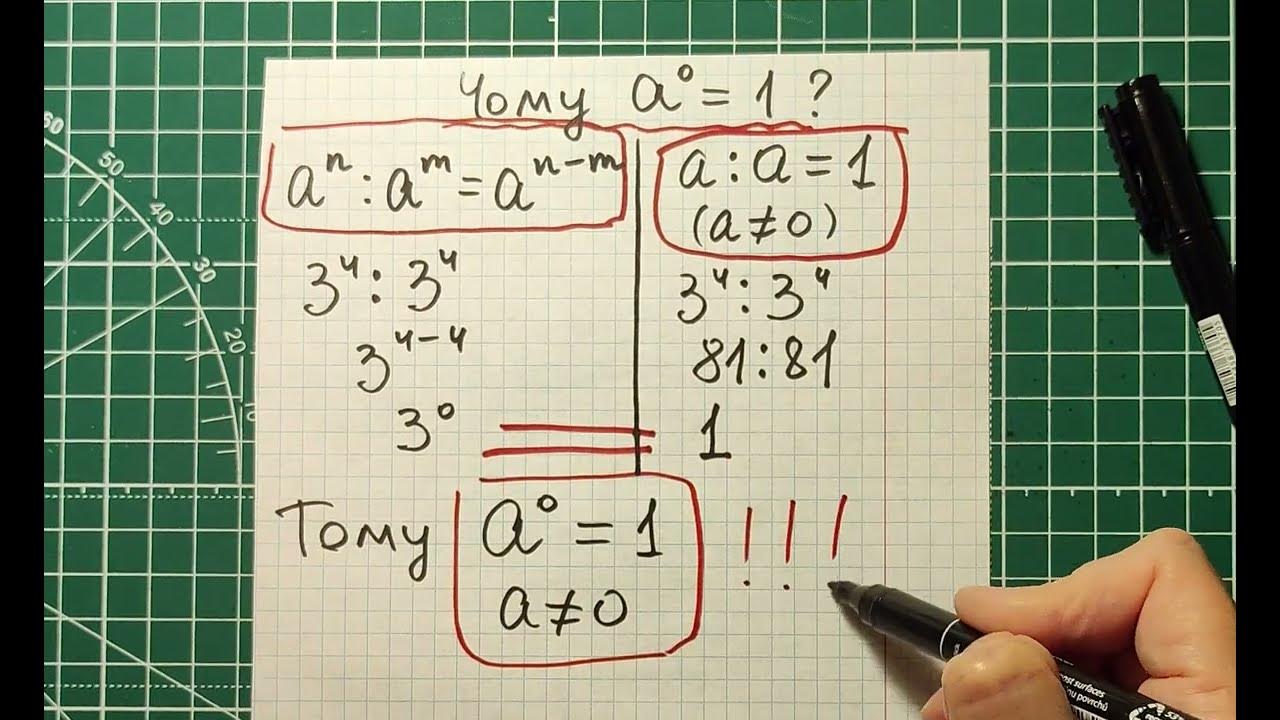 Чому a⁰ = 1 ?
aⁿ : aᵐ = aⁿ⁻ᵐ
3⁴ : 3⁴
3⁴⁻⁴
3⁰
a : a = 1
(a ≠ 0)
3⁴ : 3⁴
81 : 81
1
=
Тому a⁰ = 1 !!!
a ≠ 0
60
50
40
30
20
10